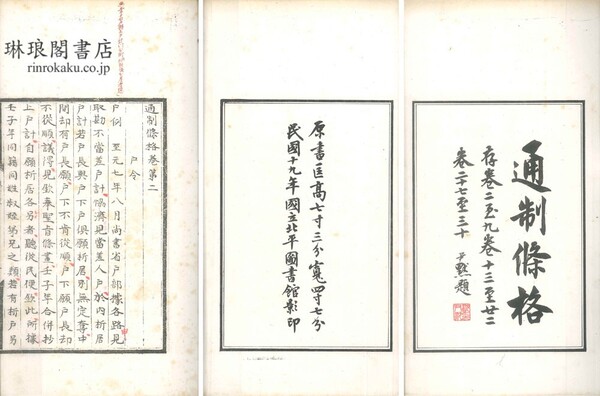 通制條格
存卷二至九卷十三至廿二
卷二十七至三十
尹默題
原書匡高七寸三分寬四寸七分
民國十九年國立北平圖書館影印
琳琅閣書店
rinrokaku.co.jp
通制條格卷第二
戶令
戶例
至元七年八月尚書省戶部據各路見
取勘不當差戶計
隨濟見當差人戶於內析居
戶計若戶長與戶下戶俱願析居別無定奪中
間却有戶長願戶下不肯從順戶下願戶長却
不從順議得見欽奉聖旨條畫壬子年合併抄
上戶計自願析居各另者聽從民便欽此所據
壬子年同籍同姓叔姪弟兄之類若有析戶另